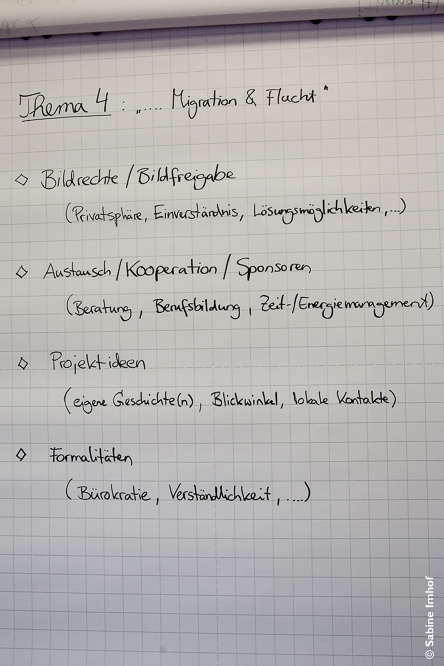 Thema 4 : „.... Migration & Flucht"
◇ Bildrechte / Bildfreigabe
(Privatsphäre, Einverständnis, Lösungsmöglichkeiten,...)
◇ Austausch / Kooperation / Sponsoren
(Beratung, Berufsbildung, Zeit-/Energiemanagement)
◇ Projektideen
(eigene Geschichte(n), Blickwinkel, lokale Kontakte)
◇ Formalitäten
(Bürokratie, Verständlichkeit, ....)
© Sabine Imhof